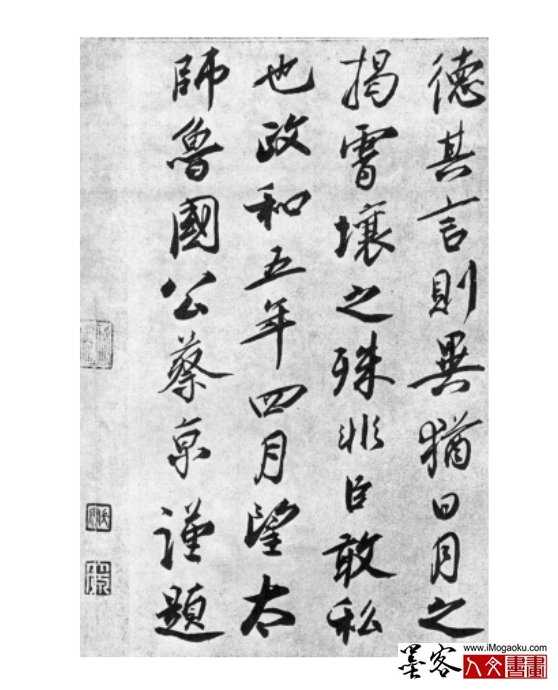 德其言則異猶日月之
揭霄壤之殊非臣敢私
也政和五年四月望太
師魯國公蔡京謹題
www.iMogaoku.com
墨客
人文書畫